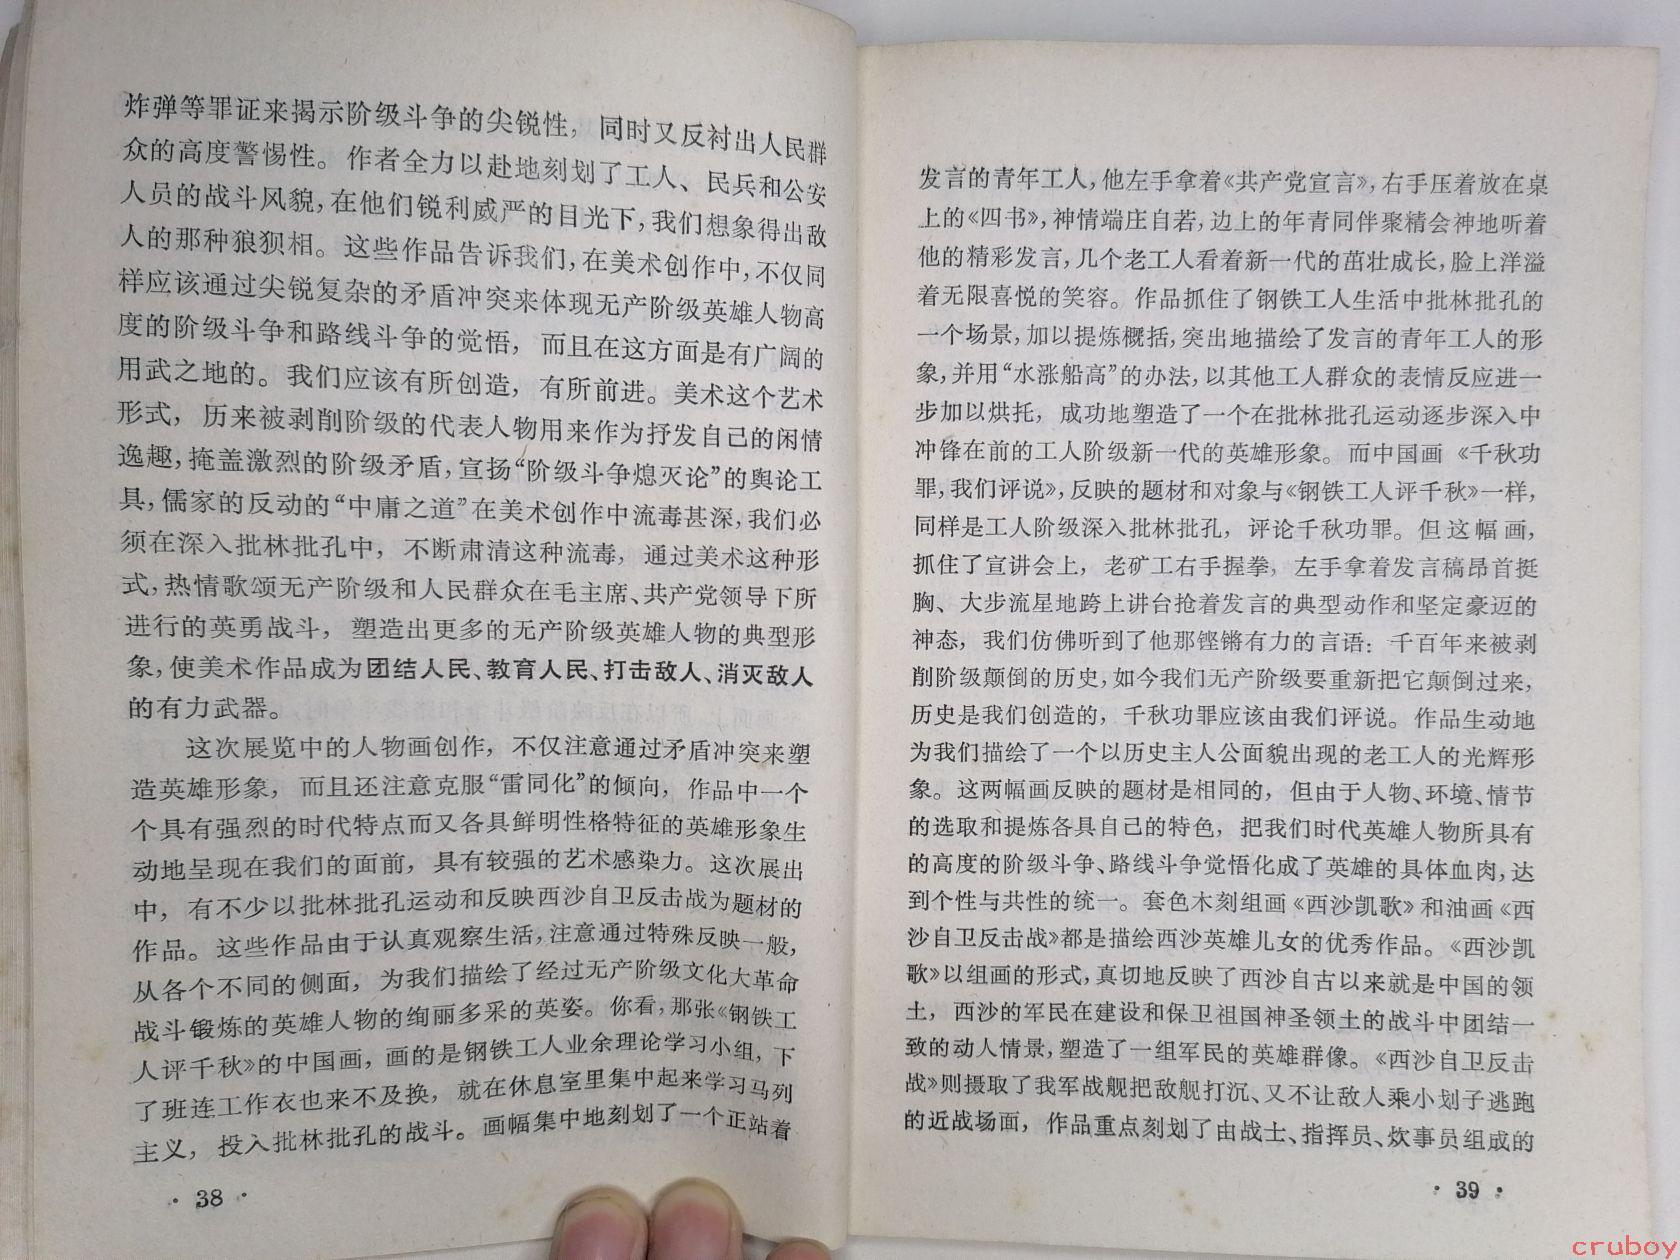 炸弹等罪证来揭示阶级斗争的尖锐性，同时又反衬出人民群
众的高度警惕性。作者全力以赴地刻划了工人、民兵和公安
人员的战斗风貌，在他们锐利威严的目光下，我们想象得出敌
人的那种狼狈相。这些作品告诉我们，在美术创作中，不仅同
样应该通过尖锐复杂的矛盾冲突来体现无产阶级英雄人物高
度的阶级斗争和路线斗争的觉悟，而且在这方面是有广阔的
用武之地的。我们应该有所创造，有所前进。美术这个艺术
形式，历来被剥削阶级的代表人物用来作为抒发自己的闲情
逸趣，掩盖激烈的阶级矛盾，宣扬“阶级斗争熄灭论”的舆论工
具，儒家的反动的“中庸之道”在美术创作中流毒甚深，我们必
须在深入批林批孔中，不断肃清这种流毒，通过美术这种形
式，热情歌颂无产阶级和人民群众在毛主席、共产党领导下所
进行的英勇战斗，塑造出更多的无产阶级英雄人物的典型形
象，使美术作品成为团结人民、教育人民、打击敌人、消灭敌人
的有力武器。
这次展览中的人物画创作，不仅注意通过矛盾冲突来塑
造英雄形象，而且还注意克服“雷同化”的倾向，作品中一个
个具有强烈的时代特点而又各具鲜明性格特征的英雄形象生
动地呈现在我们的面前，具有较强的艺术感染力。这次展出
中，有不少以批林批孔运动和反映西沙自卫反击战为题材的
作品。这些作品由于认真观察生活，注意通过特殊反映一般，
从各个不同的侧面，为我们描绘了经过无产阶级文化大革命
战斗锻炼的英雄人物的绚丽多采的英姿。你看，那张《钢铁工
人评千秋》的中国画，画的是钢铁工人业余理论学习小组，下
了班连工作衣也来不及换，就在休息室里集中起来学习马列
主义，投入批林批孔的战斗。画幅集中地刻划了一个正站着
· 38 ·
发言的青年工人，他左手拿着《共产党宣言》，右手压着放在桌
上的《四书》，神情端庄自若，边上的年青同伴聚精会神地听着
他的精彩发言，几个老工人看着新一代的茁壮成长，脸上洋溢
着无限喜悦的笑容。作品抓住了钢铁工人生活中批林批孔的
一个场景，加以提炼概括，突出地描绘了发言的青年工人的形
象，并用“水涨船高”的办法，以其他工人群众的表情反应进一
步加以烘托，成功地塑造了一个在批林批孔运动逐步深入中
冲锋在前的工人阶级新一代的英雄形象。而中国画《千秋功
罪，我们评说》，反映的题材和对象与《钢铁工人评千秋》一样，
同样是工人阶级深入批林批孔，评论千秋功罪。但这幅画，
抓住了宣讲会上，老矿工右手握拳，左手拿着发言稿昂首挺
胸、大步流星地跨上讲台抢着发言的典型动作和坚定豪迈的
神态，我们仿佛听到了他那铿锵有力的言语：千百年来被剥
削阶级颠倒的历史，如今我们无产阶级要重新把它颠倒过来，
历史是我们创造的，千秋功罪应该由我们评说。作品生动地
为我们描绘了一个以历史主人公面貌出现的老工人的光辉形
象。这两幅画反映的题材是相同的，但由于人物、环境、情节
的选取和提炼各具自己的特色，把我们时代英雄人物所具有
的高度的阶级斗争、路线斗争觉悟化成了英雄的具体血肉，达
到个性与共性的统一。套色木刻组画《西沙凯歌》和油画《西
沙自卫反击战》都是描绘西沙英雄儿女的优秀作品。《西沙凯
歌》以组画的形式，真切地反映了西沙自古以来就是中国的领
土，西沙的军民在建设和保卫祖国神圣领土的战斗中团结一
致的动人情景，塑造了一组军民的英雄群像。《西沙自卫反击
战》则摄取了我军战舰把敌舰打沉、又不让敌人乘小划子逃跑
的近战场面，作品重点刻划了由战士、指挥员、炊事员组成的
· 39 ·
cruboy